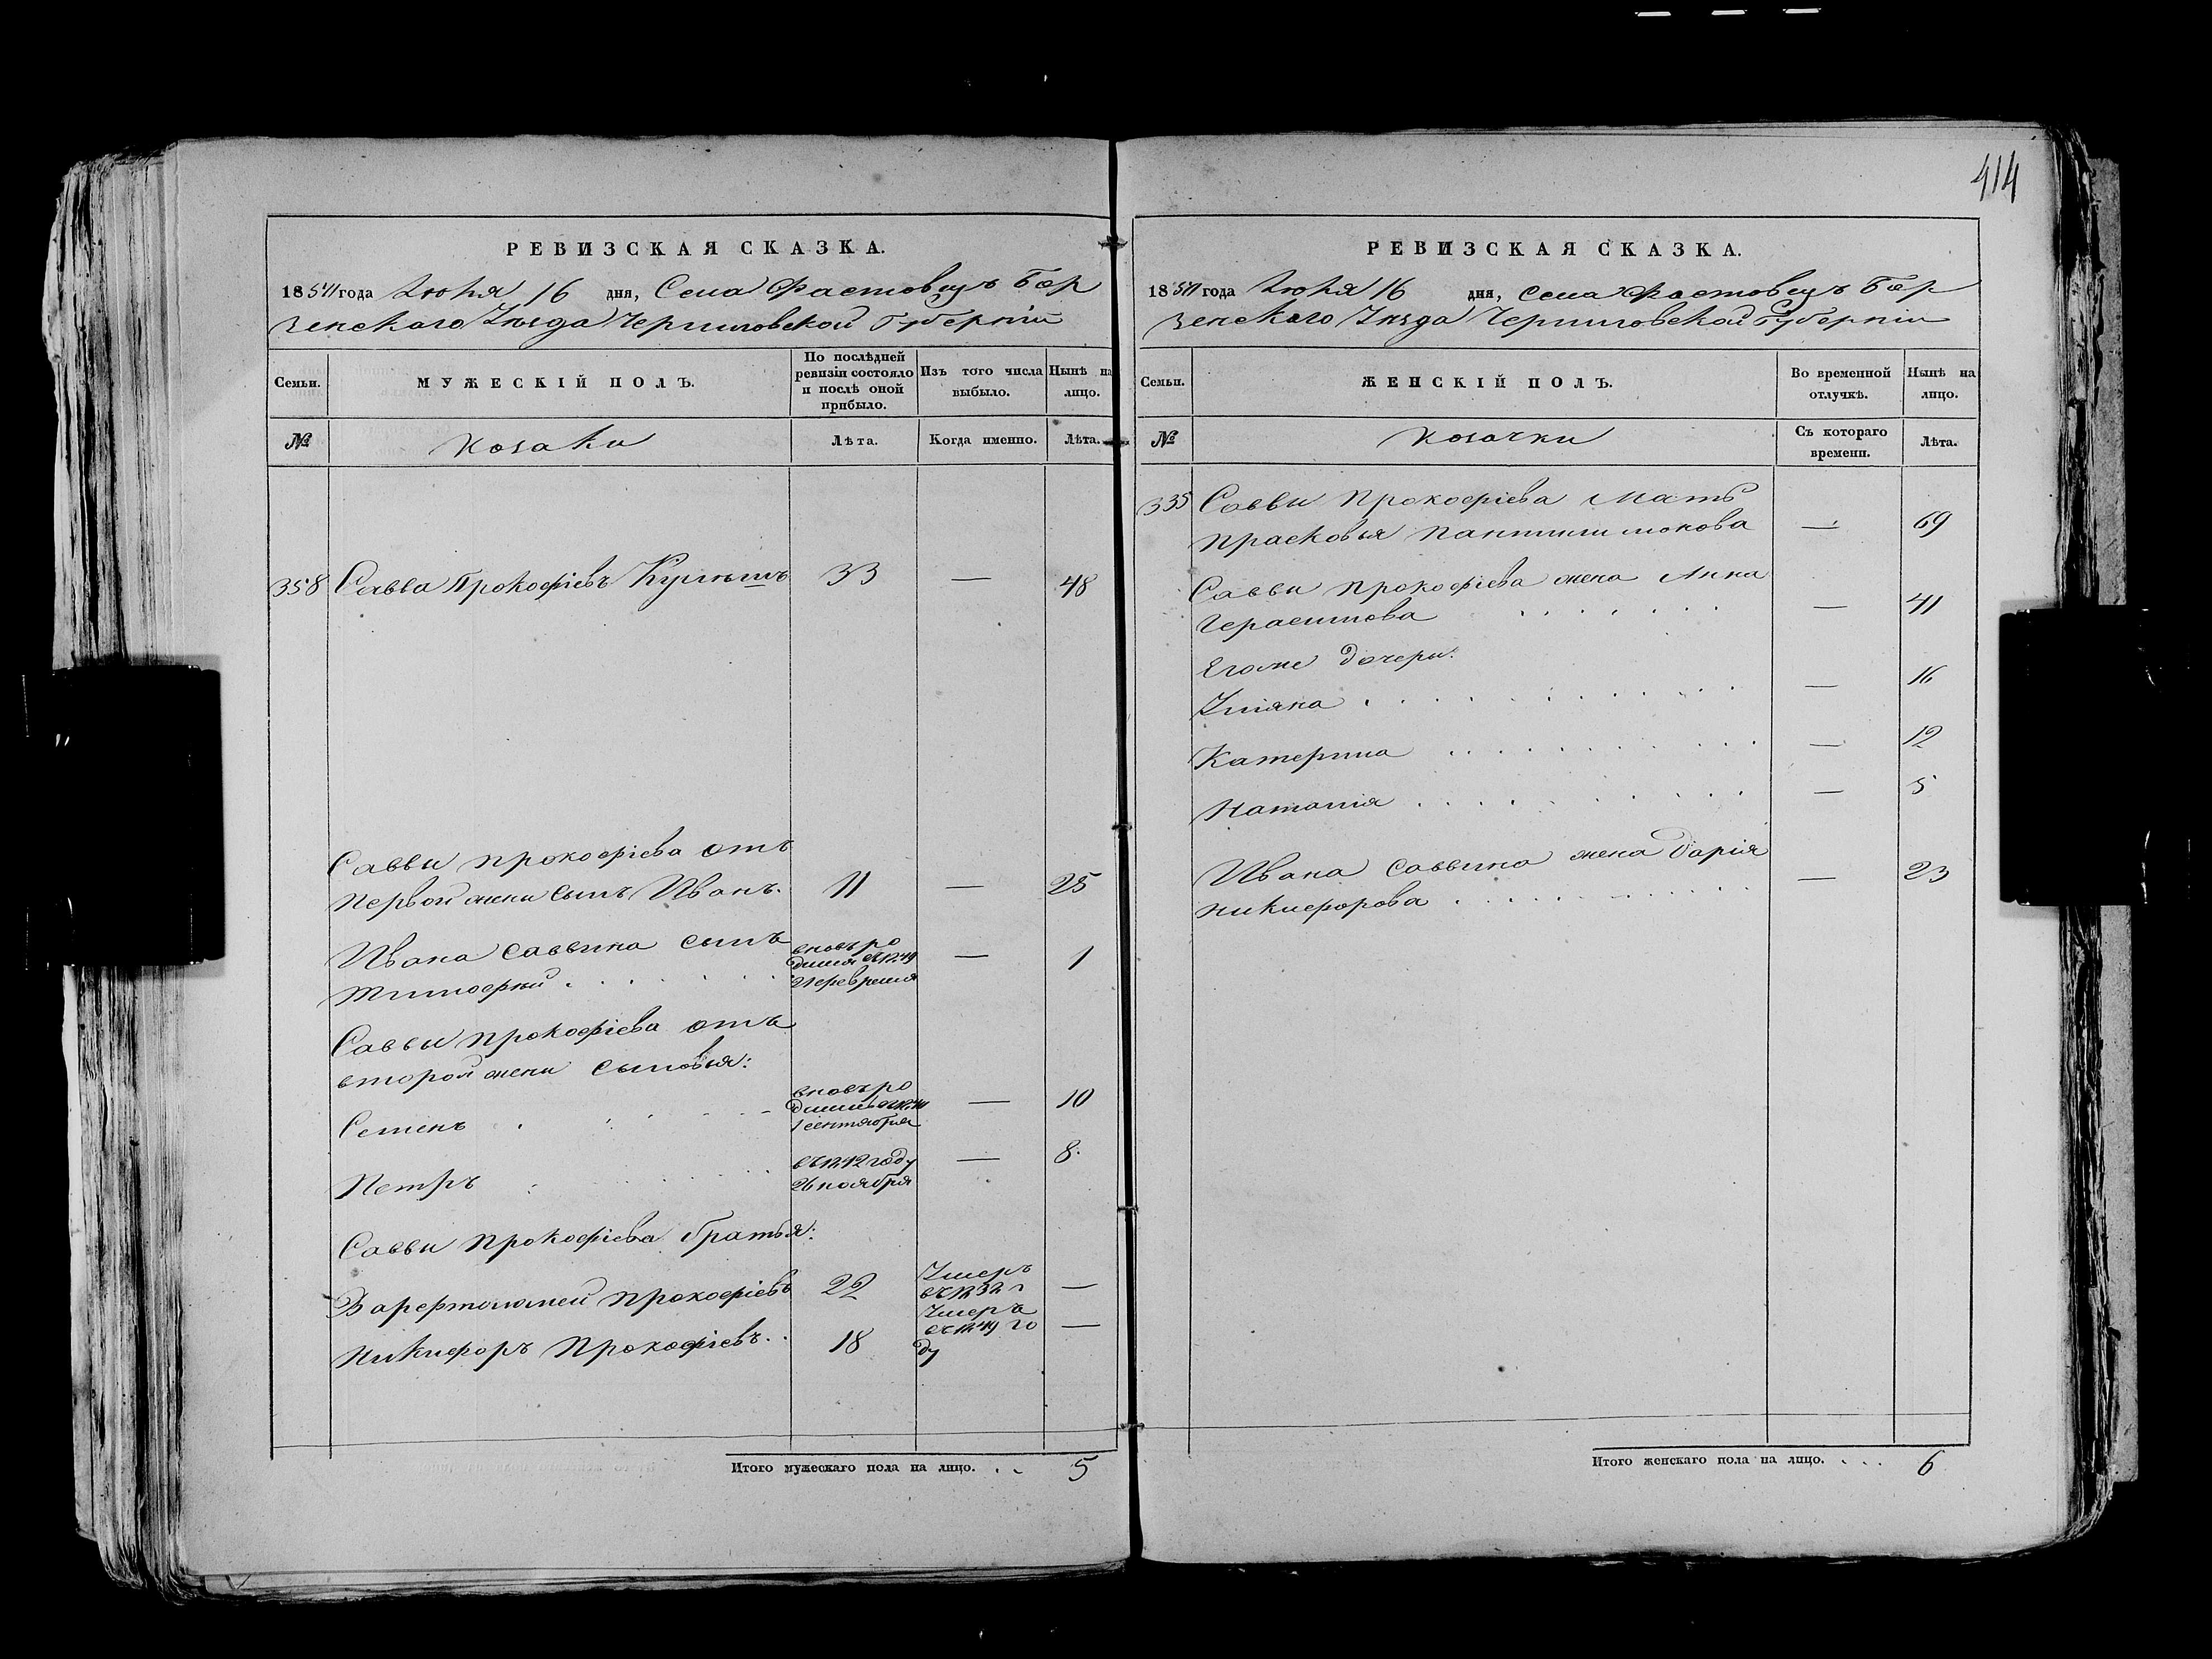 414
РЕВИЗСКАЯ СКАЗКА.
1851 года Июня 16 дня, Села Фастовецъ Бор
зенскаго Уѣзда Черниговской Губерніи
Семьи.
МУЖЕСКІЙ ПОЛЪ.
По послѣдней ревизіи состояло и послѣ оной прибыло.
Изъ того числа выбыло.
Нынѣ на лицо.
№
Козаки
Лѣта.
Когда именно.
Лѣта.
358 Савва Прокофіевъ 33 — 48
Саввы Прокофіева отъ
первой жены сынъ Иванъ. 11 — 25
Ивана Саввина сынъ
Тимофей . . . . . . вновь ро
— 1
Саввы Прокофіева отъ
второй жены сыновья:
Семенъ вновь ро
1 сентября — 10
Петръ въ 1842 году
26 ноября — 8.
Саввы Прокофіева братья:
Варфтоломей Прокофіевъ 22 Умеръ
въ 1832 г —
Никифоръ Прокофіевъ. . 18 Умеръ
въ 1849 го
ду —
Итого мужескаго пола на лицо. . . 5
РЕВИЗСКАЯ СКАЗКА.
1851 года Июня 16 дня, Села Фастовецъ Бор
зенскаго Уѣзда Черниговской Губерніи
Семьи.
ЖЕНСКІЙ ПОЛЪ.
Во временной отлучкѣ.
Нынѣ на лицо.
№
Козачки
Съ котораго времени.
Лѣта.
335 Саввы Прокофіева Мать
Прасковья — 69
Саввы Прокофіева жена Анна
Герасимова . . . . . . — 41
Его же дочери:
Уліяна . . . . . . . . . — 16
Катерина . . . . . . . . — 12
Наталія . . . . . . . . . — 5
Ивана Саввина жена Дарія
Никифорова . . . . . . . . — 23
Итого женскаго пола на лицо. . . . 6